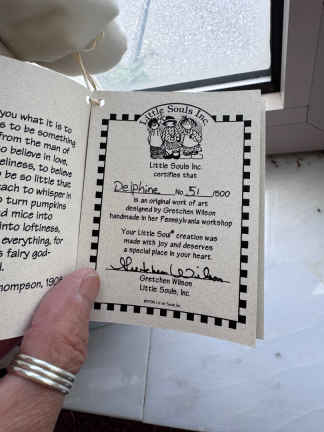 you what it is to
s to be something
from the man of
o believe in love,
eliness, to believe
be so little that
ach to whisper in
o turn pumpkins
d mice into
into loftiness,
everything, for
s fairy god-
hompson, 190
Little Souls Inc.
Little Souls Inc.
certifies that
Delphine No. 51 /500
is an original work of art
designed by Gretchen Wilson
handmade in her Pennsylvania workshop
Your Little Soul® creation was
made with joy and deserves
a special place in your heart.
Gretchen Wilson
Gretchen Wilson
Little Souls, Inc.